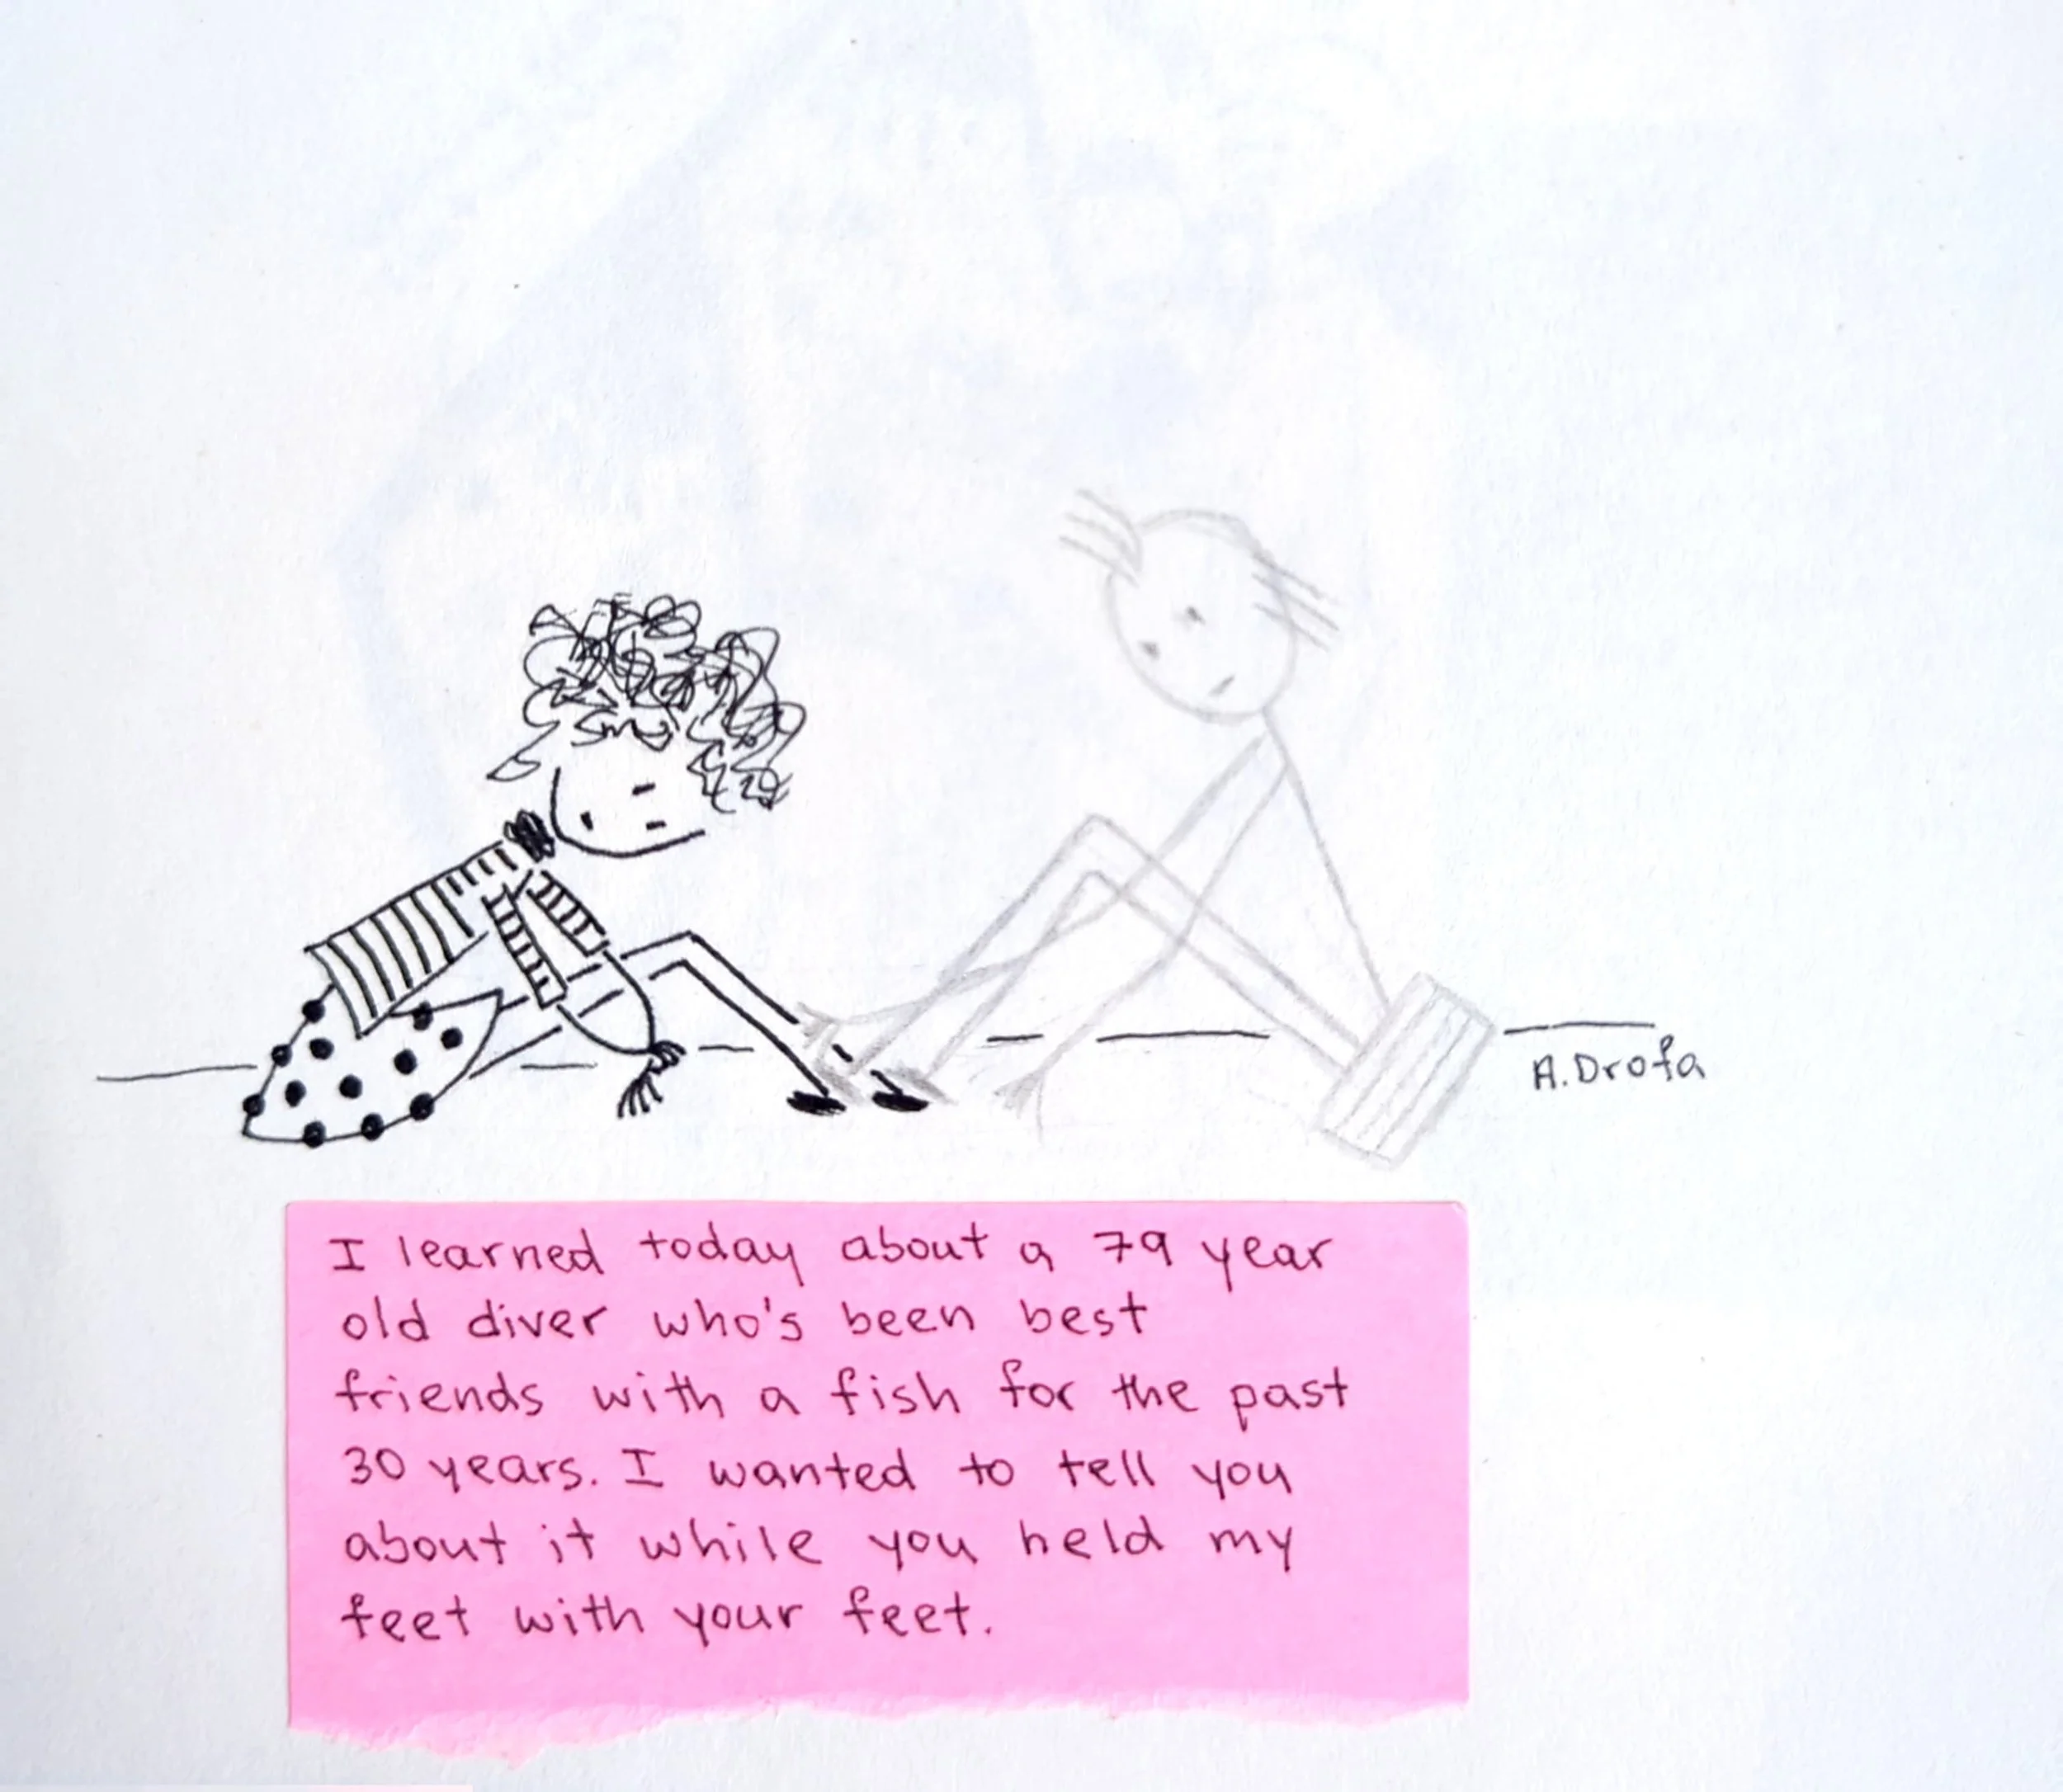 A. Drofa
I learned today about a 79 year
old diver who's been best
friends with a fish for the past
30 years. I wanted to tell you
about it while you held my
feet with your feet.